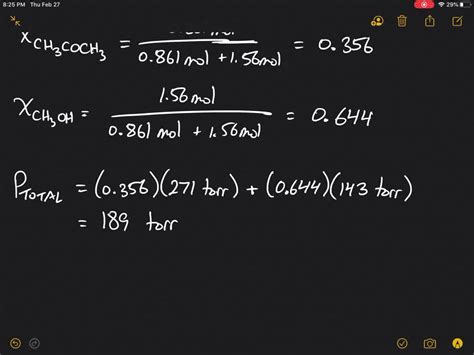 8:25 PM Thu Feb 27
29%
X CH₃COCH₃ = ———— / 0.861 mol + 1.56 mol = 0.356
X CH₃OH = 1.56 mol / 0.861 mol + 1.56 mol = 0.644
P TOTAL = (0.356)(271 torr) + (0.644)(143 torr)
= 189 torr